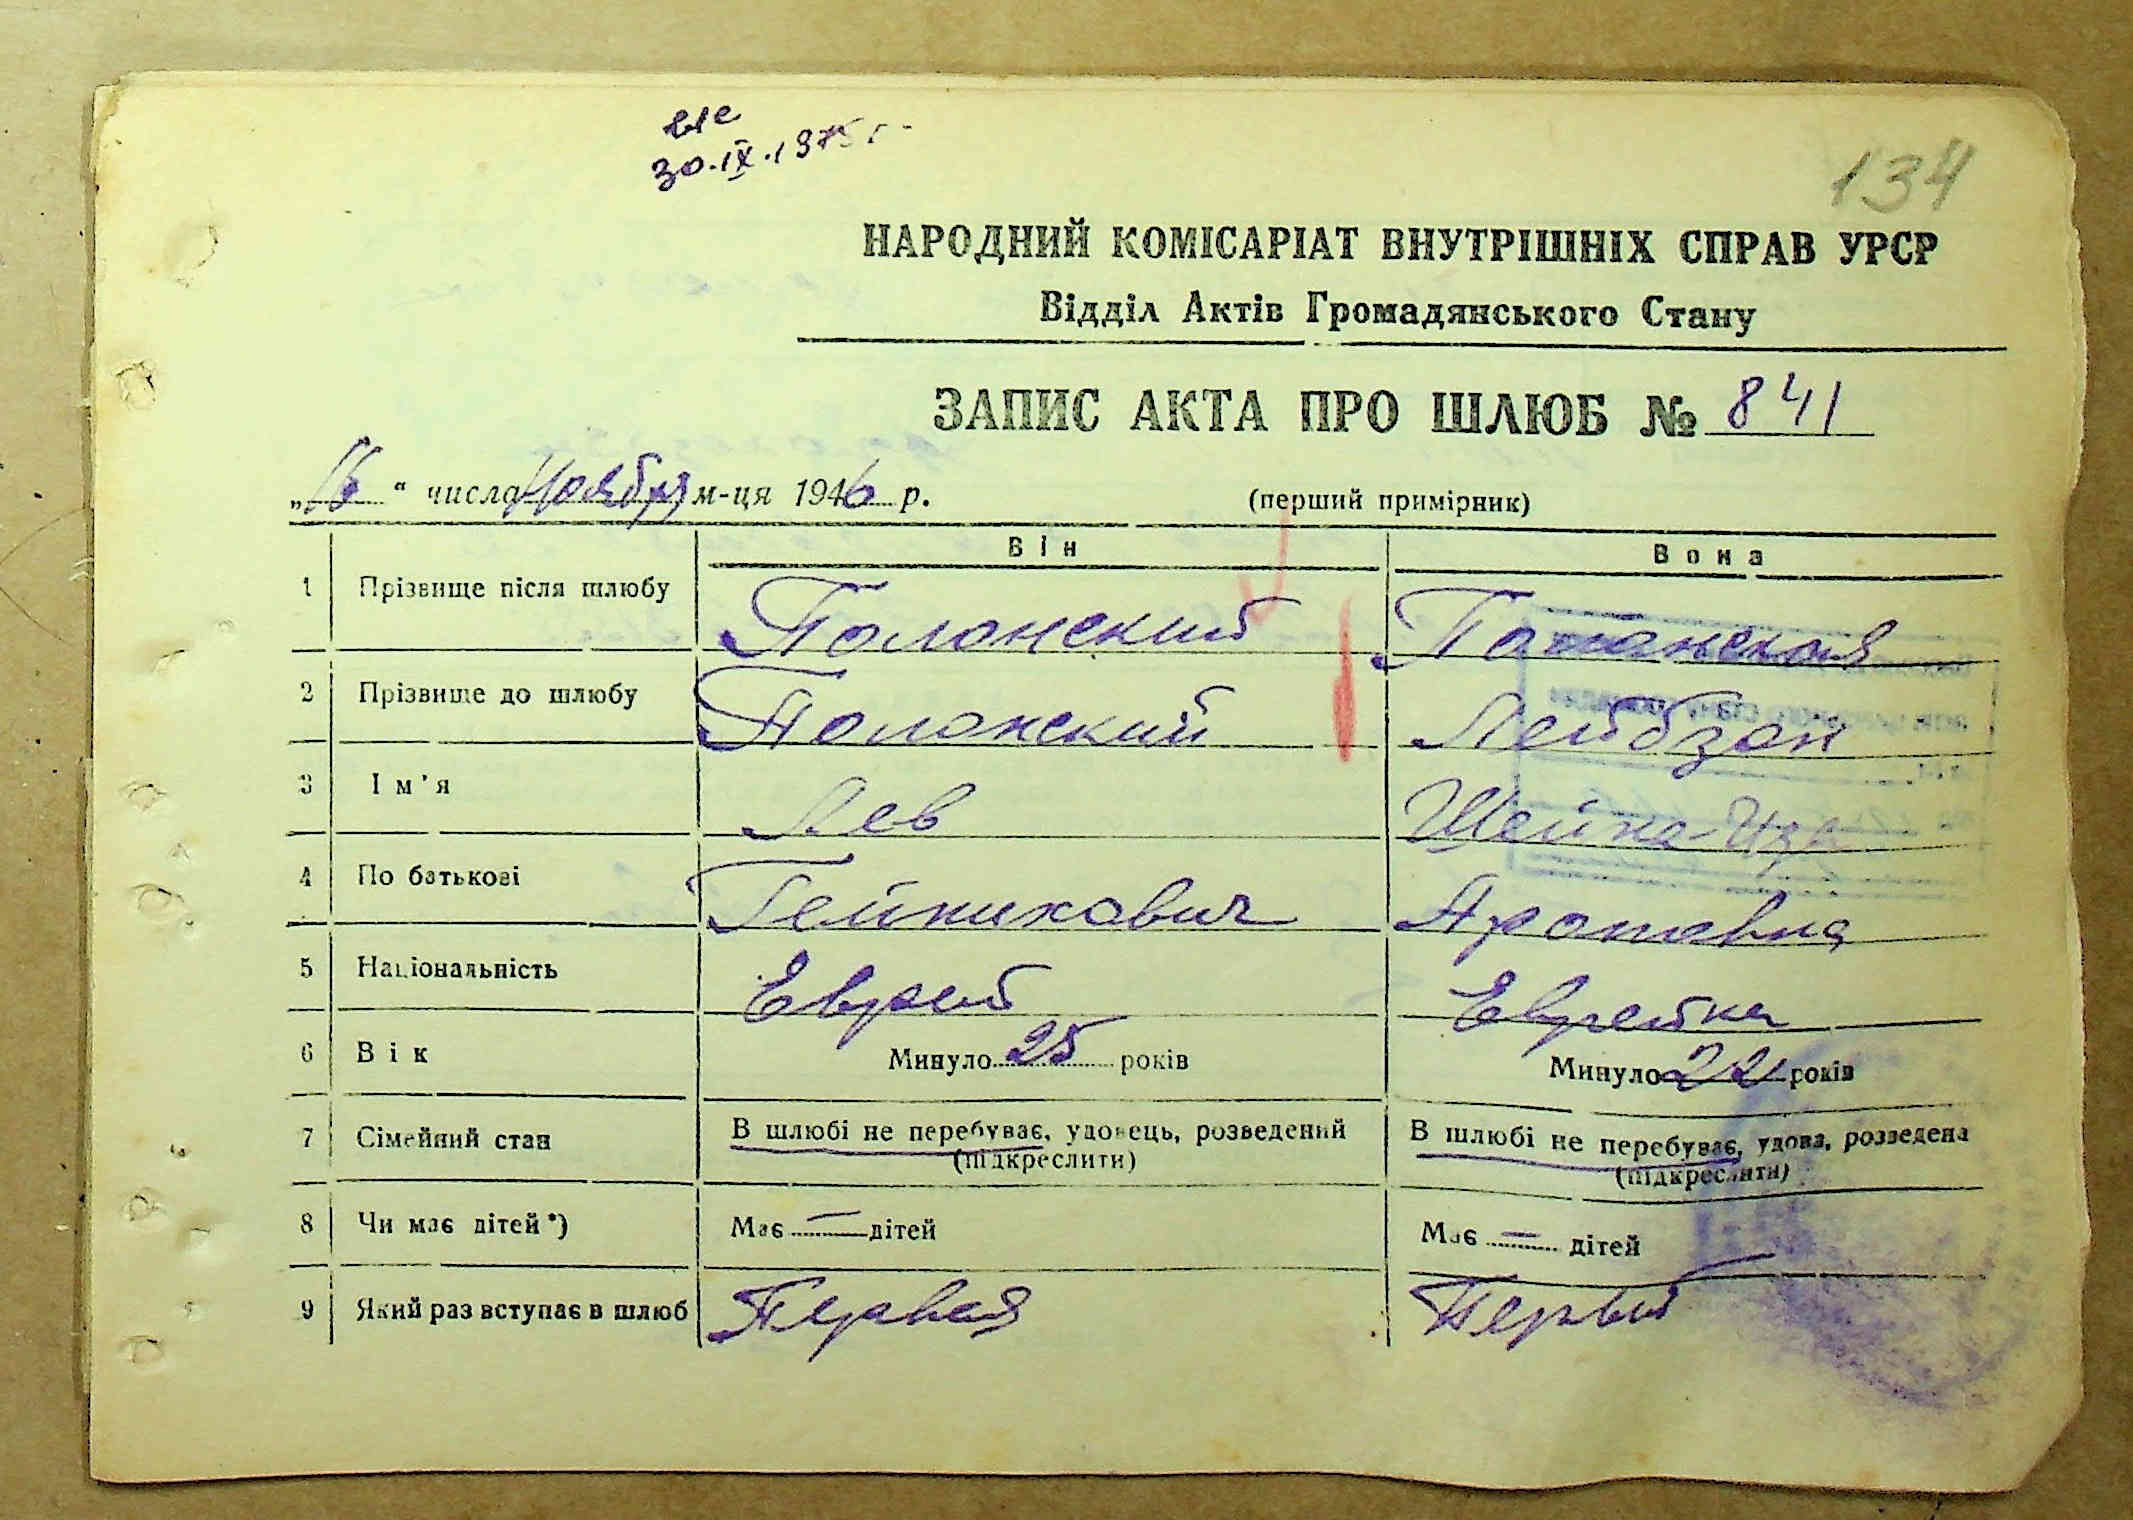 30.IX.1975 г.
134
НАРОДНИЙ КОМІСАРІАТ ВНУТРІШНІХ СПРАВ УРСР
Відділ Актів Громадянського Стану
ЗАПИС АКТА ПРО ШЛЮБ № 841
„16“ числа Ноября м-ця 1946 р. (перший примірник)
Він Вона
1 Прізвище після шлюбу Полонский Полонская
2 Прізвище до шлюбу Полонский Лейбзон
3 Ім'я Лев Шейна-
4 По батькові Гейнихович Ароновна
5 Національність Еврей Еврейка
6 Вік Минуло 25 років Минуло 22 років
7 Сімейний стан В шлюбі не перебуває, удовець, розведений В шлюбі не перебуває, удова, розведена
(підкреслити) (підкреслити)
8 Чи має дітей*) Має — дітей Має — дітей
9 Який раз вступає в шлюб Первый Первый